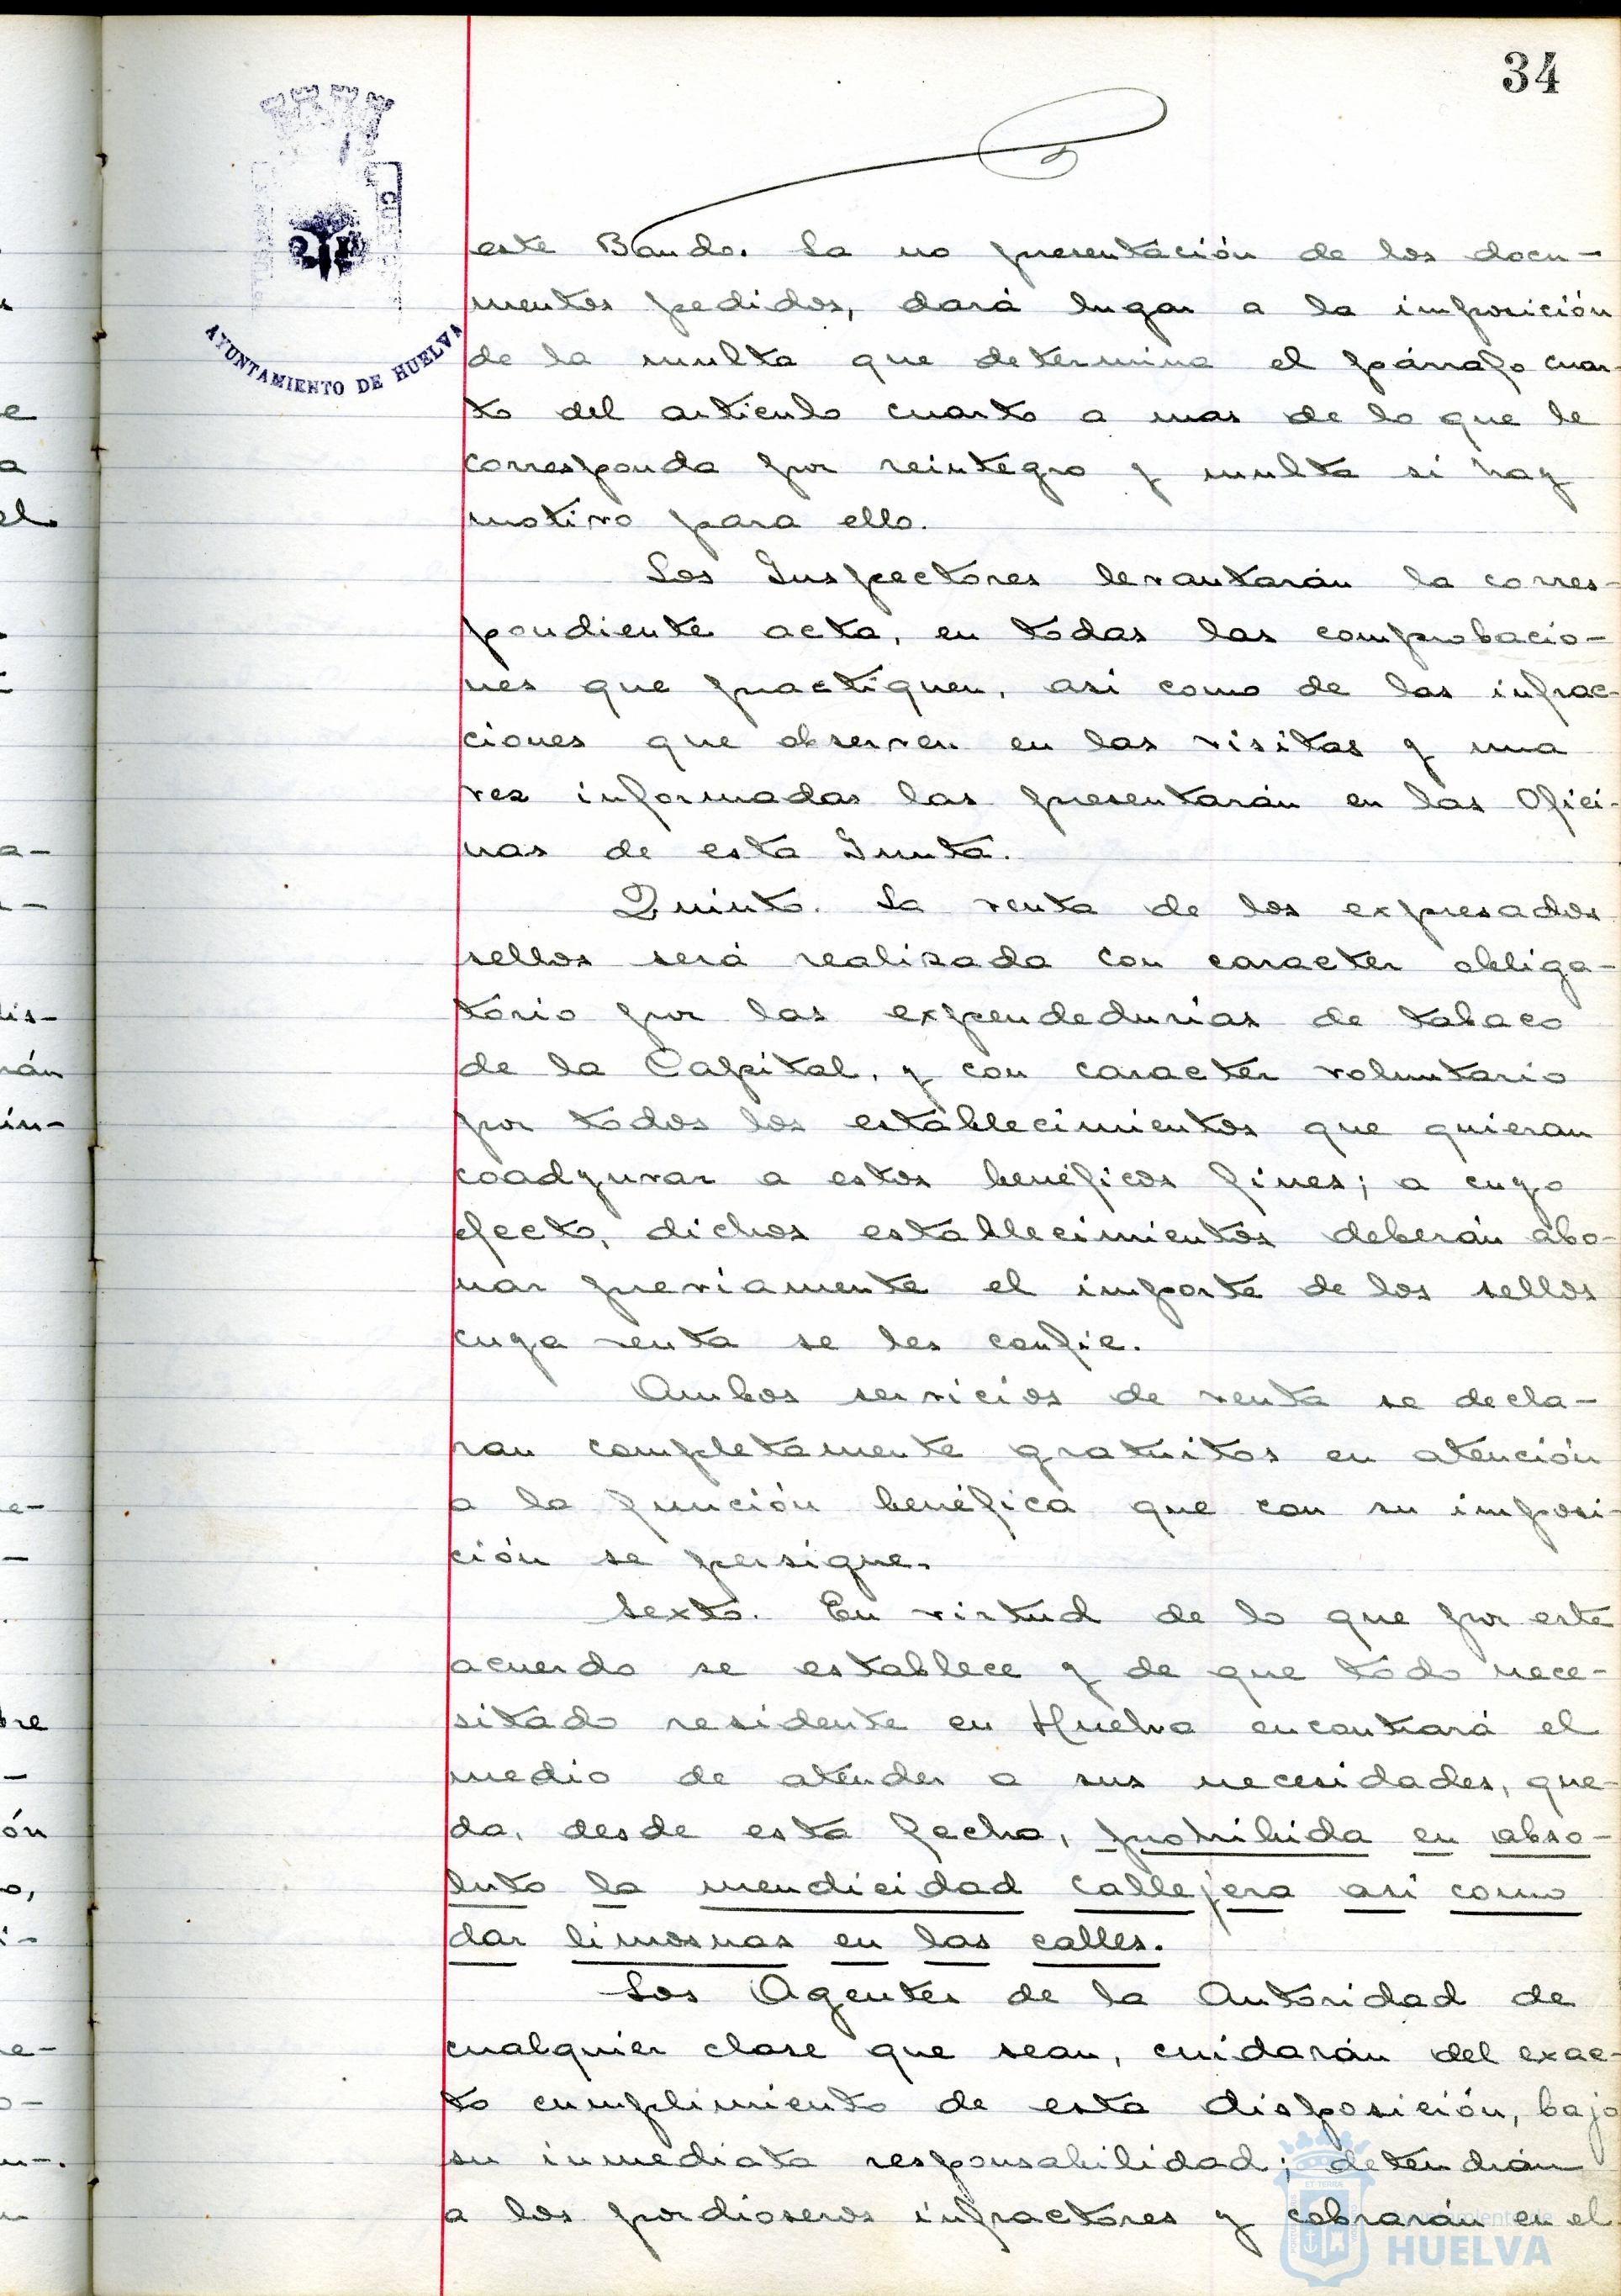 34
AYUNTAMIENTO DE HUELVA
este Bando. La no presentación de los docu-
mentos pedidos, dará lugar a la imposición
de la multa que determina el párrafo cuar-
to del articulo cuarto a mas de lo que le
corresponda por reintegro y multa si hay
motivo para ello.
Los Inspectores levantarán la corres-
pondiente acta, en todas las comprobacio-
nes que practiquen, asi como de las infrac-
ciones que observen en las visitas y una
vez informadas las presentarán en las Ofici-
nas de esta Junta.
Quinto. La venta de los expresados
sellos será realizada con caracter obliga-
torio por las expendedurias de tabaco
de la Capital, y con caracter voluntario
por todos los establecimientos que quieran
coadyuvar a estos benéficos fines; a cuyo
efecto, dichos establecimientos deberán abo-
nar previamente el importe de los sellos
cuya venta se les confie.
Ambos servicios de venta se decla-
ran completamente gratuitos en atención
a la función benéfica que con su imposi-
ción se persigue.
Sexto. En virtud de lo que por este
acuerdo se establece y de que todo nece-
sitado residente en Huelva encontrará el
medio de atender a sus necesidades, que-
da, desde esta fecha, prohibida en abso-
luto la mendicidad callejera asi como
dar limosnas en las calles.
Los Agentes de la Autoridad de
cualquier clase que sean, cuidarán del exac-
to cumplimiento de esta disposición, bajo
su inmediata responsabilidad; detendrán
a los pordioseros infractores y cobrarán en el
HUELVA